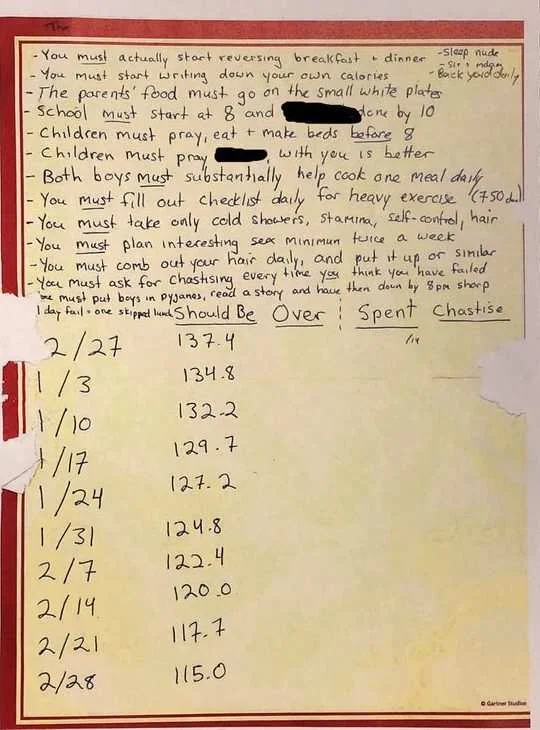 - You must actually start reversing breakfast + dinner
- Sleep nude
- Sir + mdam
- Back yard daily
- You must start writing down your own calories
- The parents' food must go on the small white plates
- School must start at 8 and done by 10
- Children must pray, eat + make beds before 8
- Children must pray , with you is better
- Both boys must substantially help cook one meal daily
- You must fill out checklist daily for heavy exercise (750
- You must take only cold showers, stamina, self-control, hair
- You must plan interesting sex minimun twice a week
- You must comb out your hair daily, and put it up or similar
- You must ask for chastising every time you think you have failed
must put boys in pyjanes, read a story and have then down by 8pm sharp
1 day fail = one skipped lunch
Should Be Over Spent Chastise
2/27 137.4
1/3 134.8
1/10 132.2
1/17 129.7
1/24 127.2
1/31 124.8
2/7 122.4
2/14 120.0
2/21 117.7
2/28 115.0
© Gartner Studios